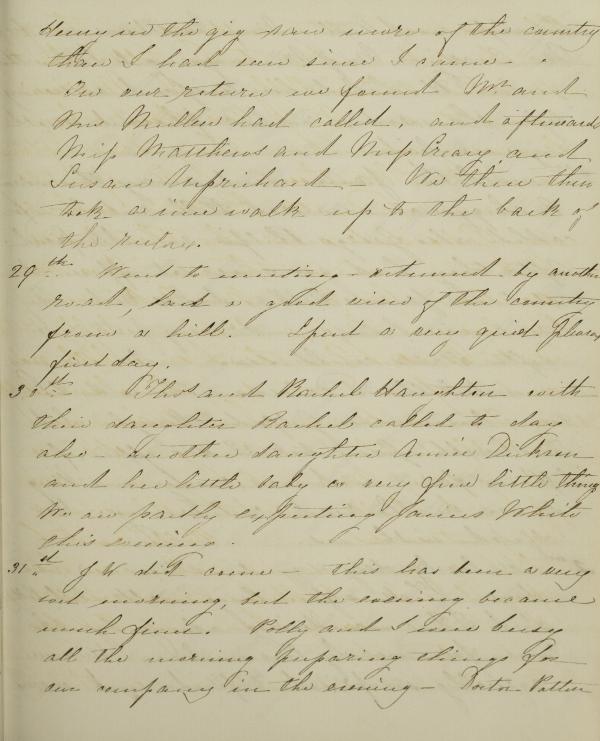 Henry in the gig saw more of the country
than I had seen since I came -
On our return we found Mr and
Mrs Mullen had called, and afterwards
Miss Matthews and Miss Creary and
Susan Uprichard - We three then
took a nice walk up to the back of
the
29th Went to meeting - returned by another
road, had a good view of the country
from a hill. Spent a very quiet pleasant
first day.
30th Thos and Rachel Haughton with
their daughter Rachel called to day
also - another daughter Annie Dickson
and her little baby a very fine little thing
We are partly expecting James White
this evening.
31st J W did come - this has been a very
wet morning, but the evening became
much finer. Polly and I were busy
all the morning preparing things for
our company in the evening - Doctor